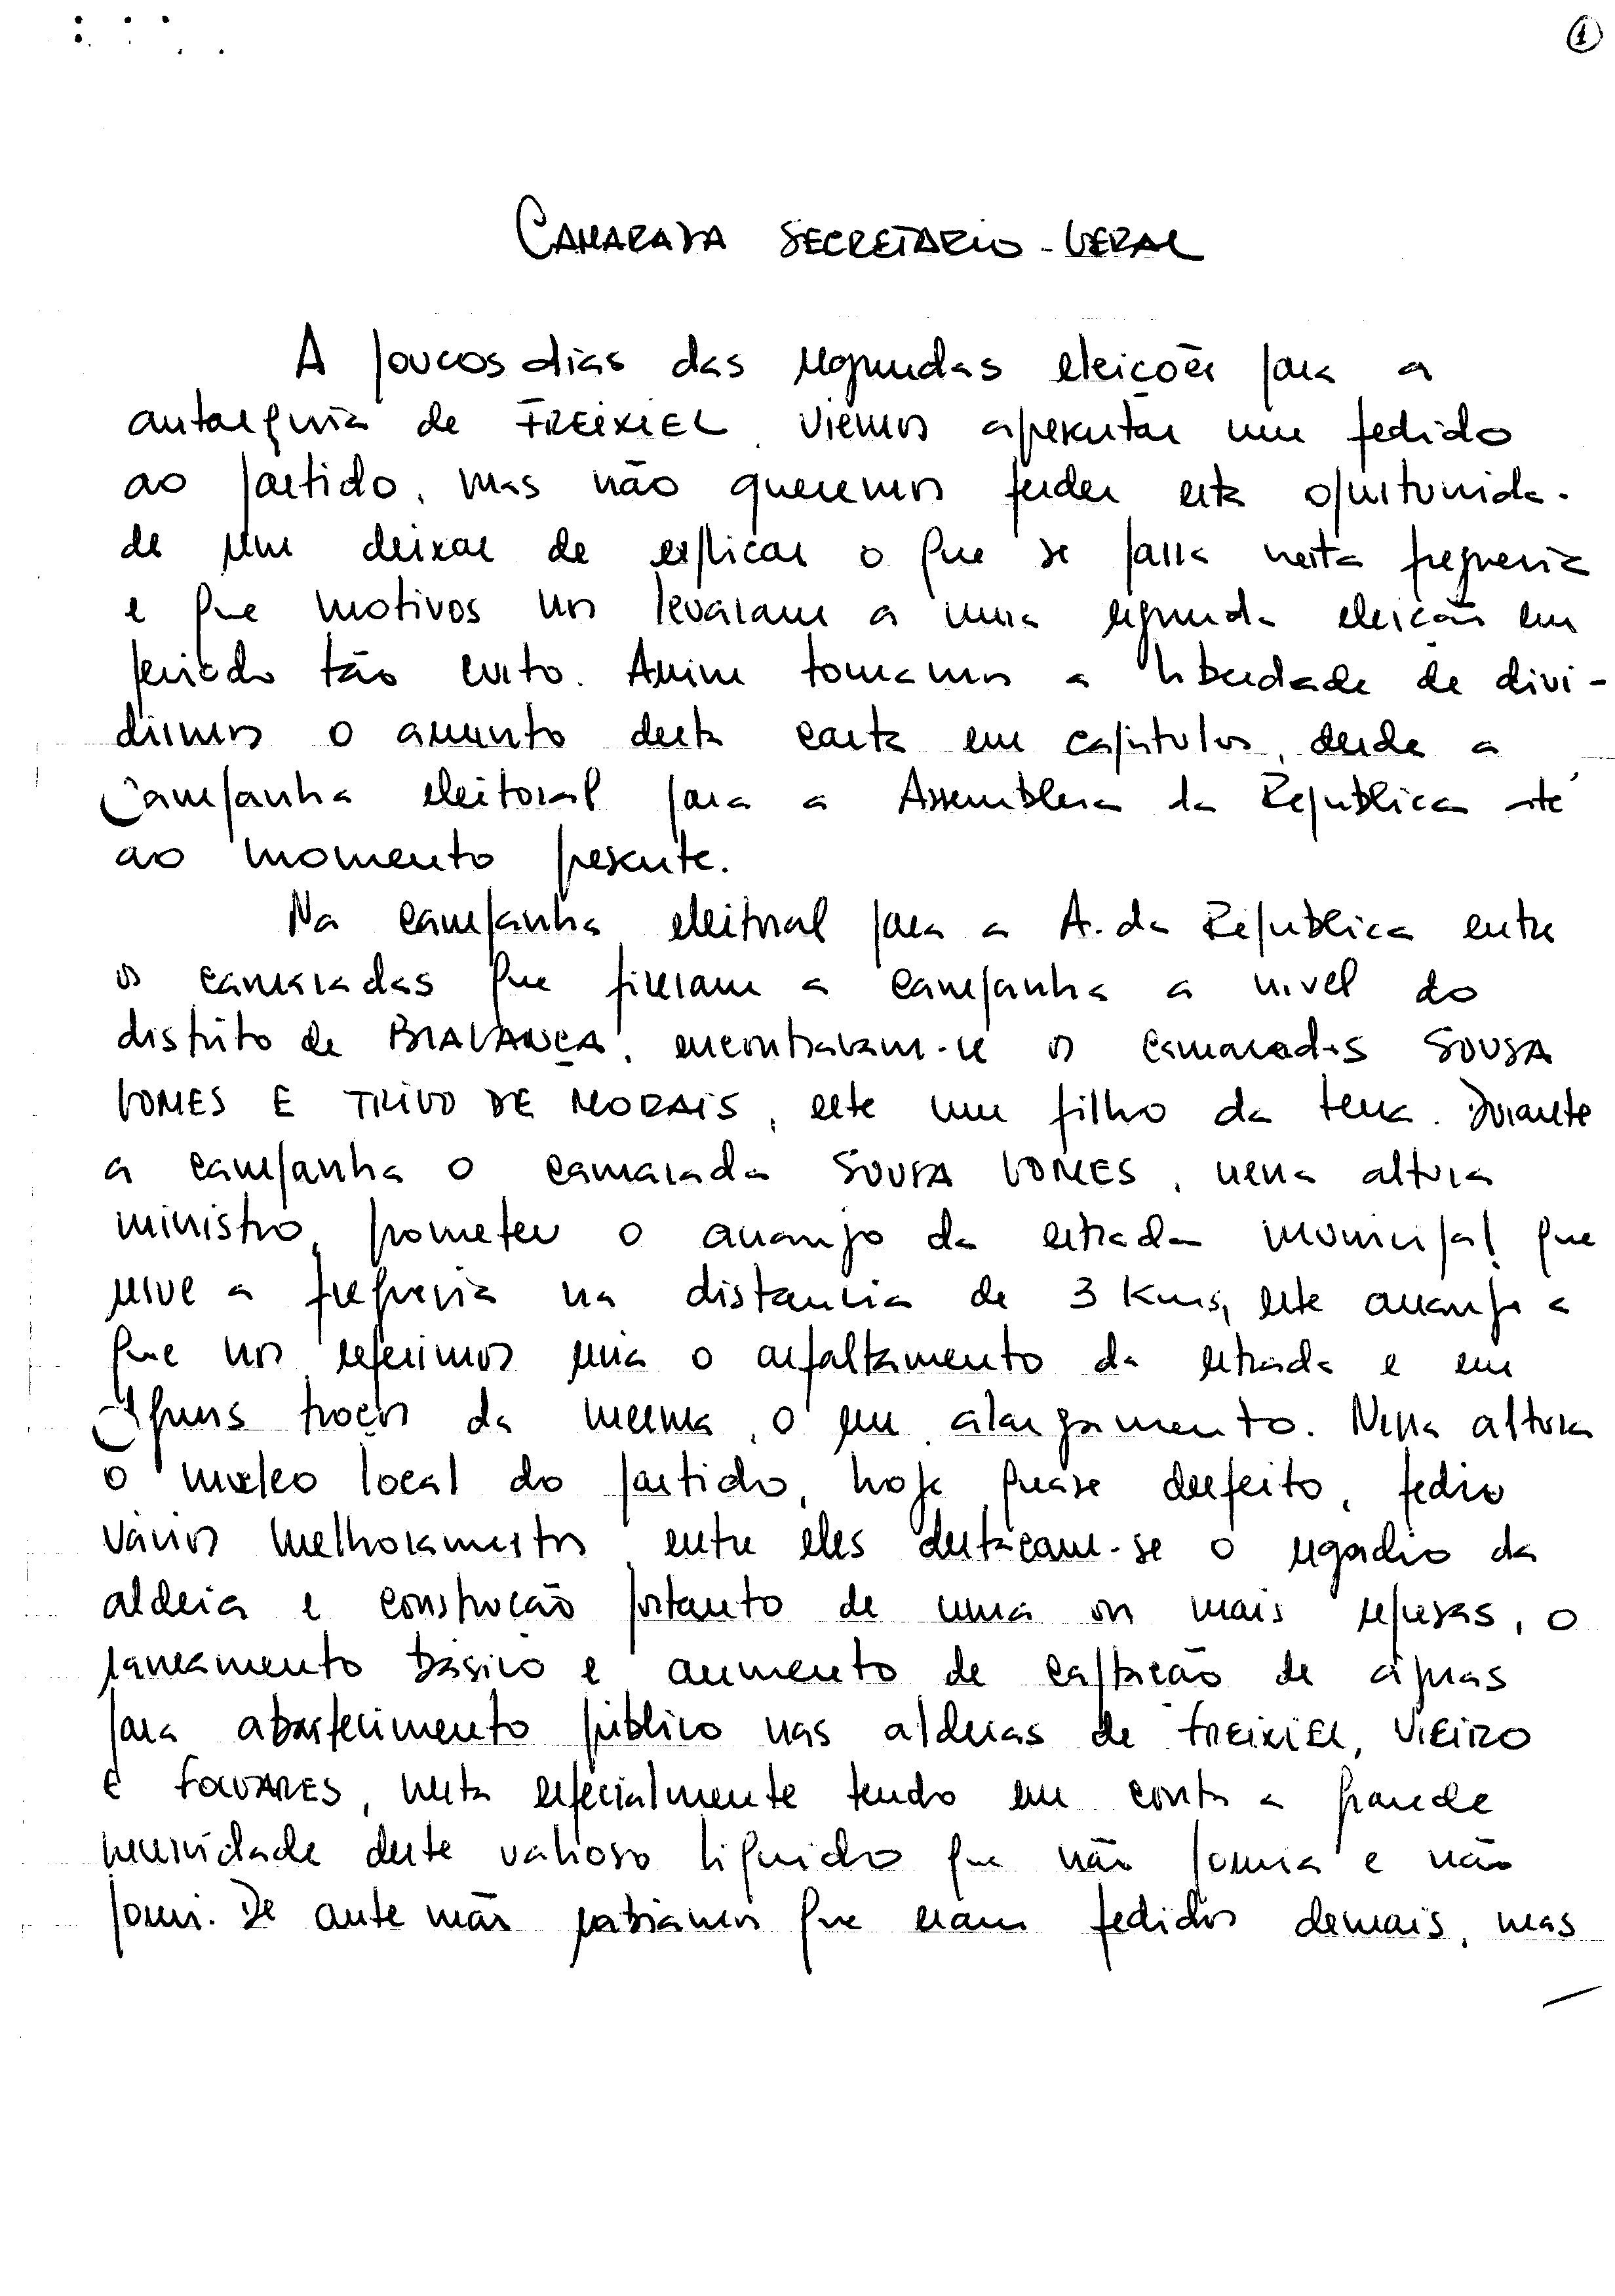 1
CAMARADA SECRETARIO-GERAL
A poucos dias das segundas eleições para a
autarquia de FREIXIEL, viemos apresentar um pedido
ao partido, mas não queremos perder esta oportunida-
de sem deixar de explicar o que se passa nesta freguesia
e que motivos nos levaram a uma segunda eleição em
periodo tão curto. Assim tomamos a liberdade de divi-
dirmos o assunto desta carta em capitulos, desde a
Campanha eleitoral para a Assembleia da Republica até
ao momento presente.
Na campanha eleitoral para a A. da Republica entre
os camaradas que fizeram a campanha a nivel do
distrito de BRAGANÇA, encontravam-se os camaradas SOUSA
GOMES E TRIGO DE MORAIS, este um filho da terra. Durante
a campanha o camarada SOUSA GOMES, nessa altura
ministro, prometeu o arranjo da estrada municipal que
serve a freguesia na distancia de 3 Kms, este arranjo a
que nos referimos seria o asfaltamento da estrada e em
alguns troços da mesma, o seu alargamento. Nessa altura
o nucleo local do partido, hoje quase desfeito, pediu
vários melhoramentos, entre eles destacam-se o regadio da
aldeia e construção portanto de uma ou mais represas, o
saneamento básico e aumento de captação de águas
para abastecimento público nas aldeias de FREIXIEL, VIEIRO
E FOLGARES, nesta especialmente tendo em conta a grande
necessidade deste valioso liquido que não possuia e não
possui. De ante mão sabiamos que eram pedidos demais, mas